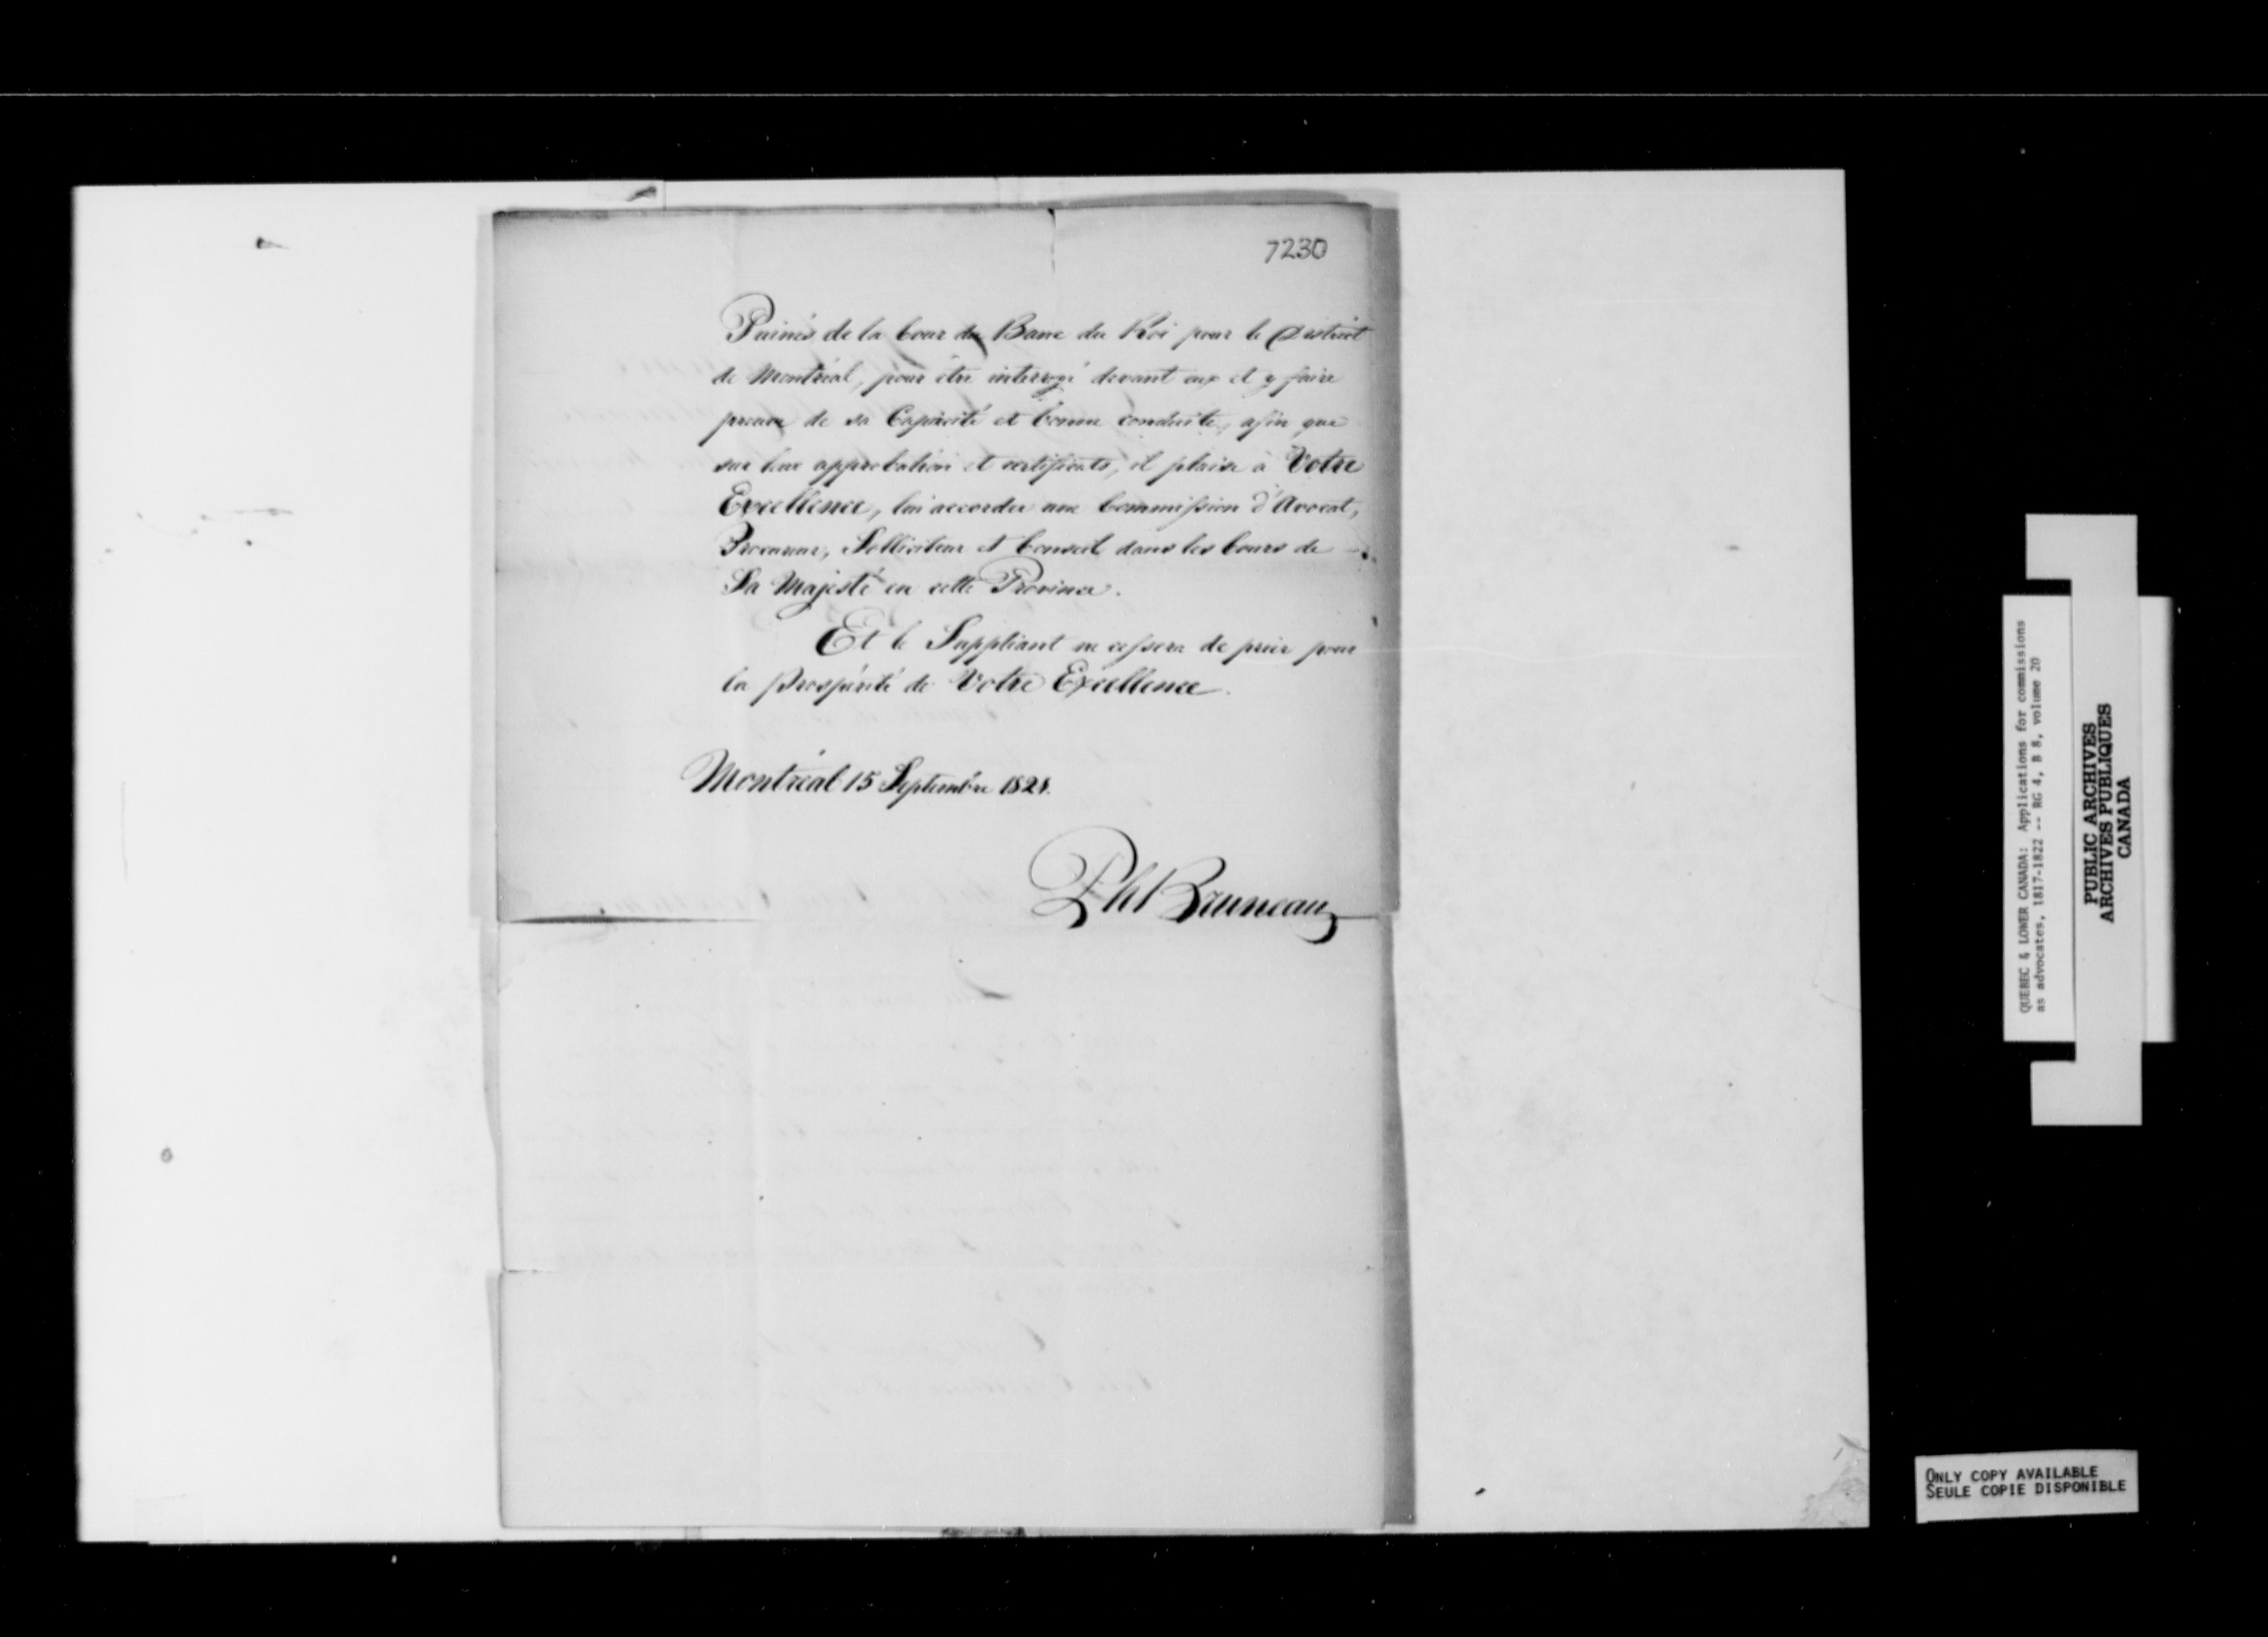 7230
Puinés de la Cour du Banc du Roi pour le District
de Montréal, pour être interrogé devant eux et y faire
preuve de sa Capacité et bonne conduite, afin que
sur leur approbation et certificats, il plaise à Votre
Excellence, lui accorder une Commission d'Avocat,
Procureur, Solliciteur et Conseil dans les Cours de
Sa Majesté en cette Province.
Et le Suppliant ne cessera de prier pour
la prospérité de Votre Excellence.
Montréal 15 Septembre 1821.
Pht Bruneau
QUEBEC & LOWER CANADA: Applications for commissions
as advocates, 1817-1822 -- RG 4, B 8, volume 20
PUBLIC ARCHIVES
ARCHIVES PUBLIQUES
CANADA
ONLY COPY AVAILABLE
SEULE COPIE DISPONIBLE